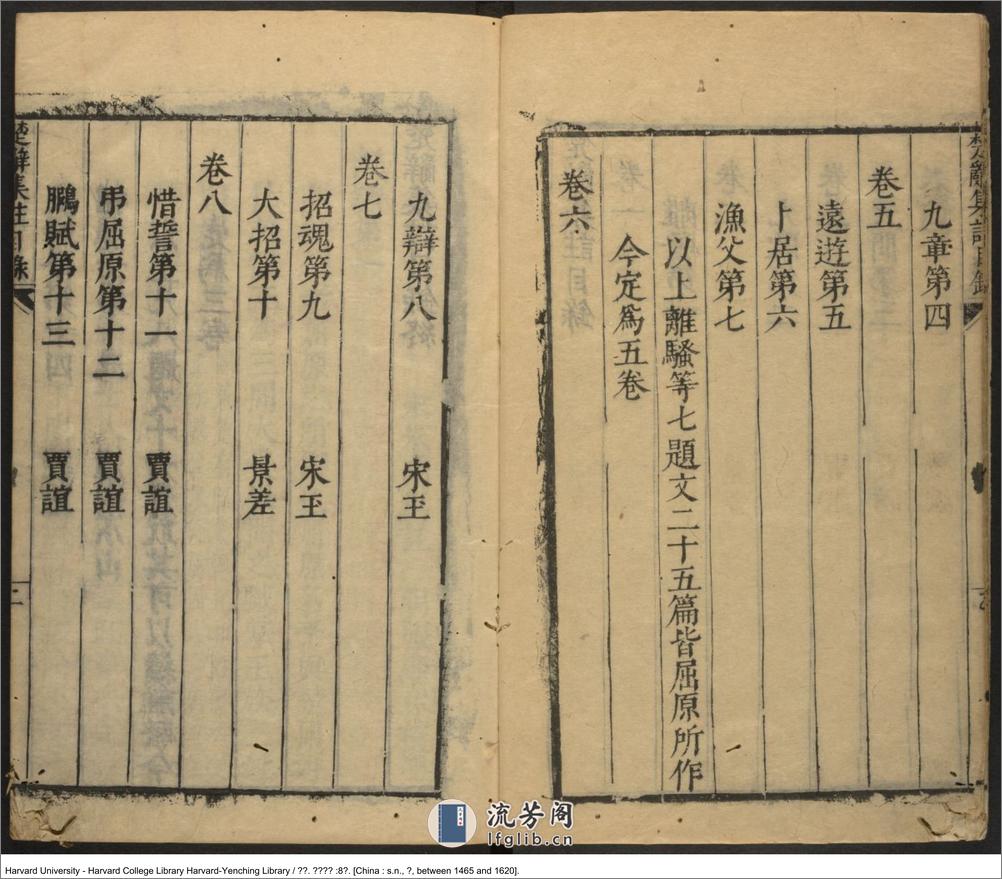 九章第四
卷五
遠遊第五
卜居第六
漁父第七
以上離騷等七題文二十五篇皆屈原所作
今定爲五卷
卷六
九辯第八 宋玉
卷七
招魂第九 宋玉
大招第十 景差
卷八
惜誓第十一 賈誼
弔屈原第十二 賈誼
鵩賦第十三 賈誼
楚辭集註目錄
二
流芳阁
lfglib.cn
Harvard University - Harvard College Library Harvard-Yenching Library / ??. ???? :8?. [China : s.n., ?, between 1465 and 1620].